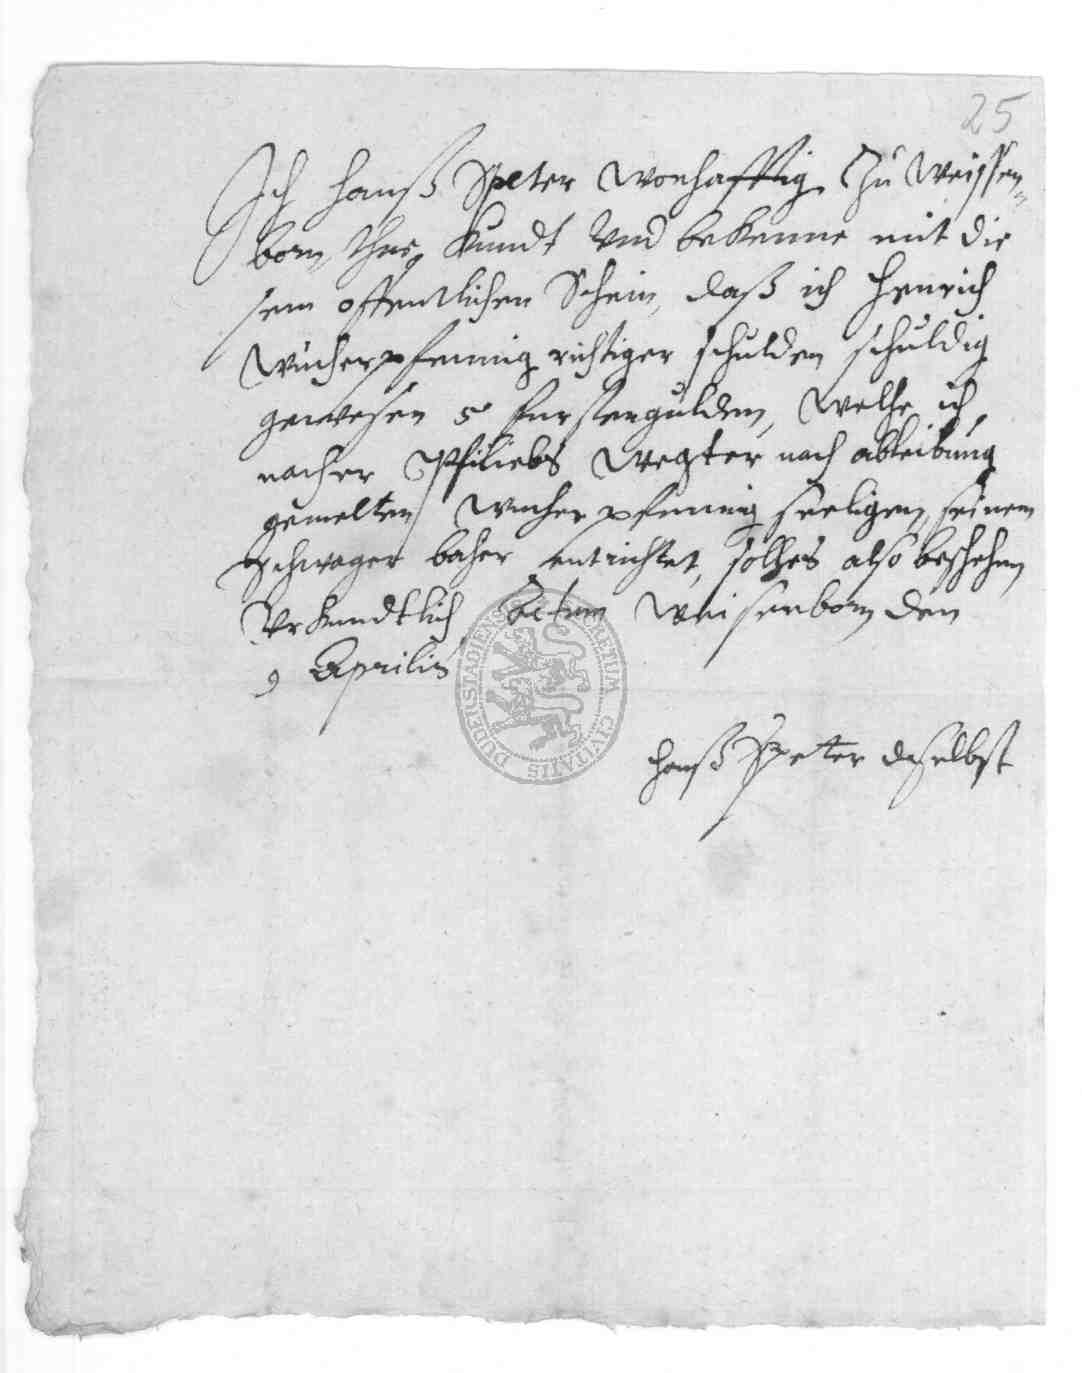 25
Ich Hanß Speter wonhafftig Zu Weissen
born, thue kundt Vnd bekenne mit die
sem offentlichen Schein, daß ich Henrich
Wucherpfennig richtiger schulden schuldig
gewesen 5 furstengulden, Welche ich
nacher Philiebs nach ableibung
gemelten Wucherpfennig seeligen, seinem
Schwager baher entrichtet, solches also beschehen
Vrkundtlich Actum Weisenborn den
9 Aprilis
SIGILLUM SECRETUM CIVITATIS DUDERSTADIENSIS
Hanß Speter daselbst